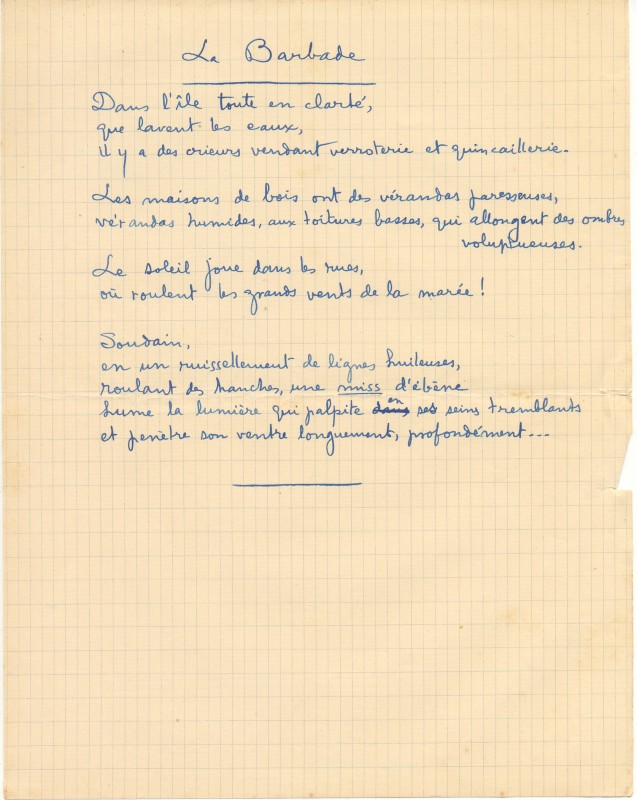 La Barbade
Dans l'île toute en clarté,
que lavent les eaux,
il y a des crieurs vendant verroterie et quincaillerie.
Les maisons de bois ont des vérandas paresseuses,
vérandas humides, aux toitures basses, qui allongent des ombres
voluptueuses.
Le soleil joue dans les rues,
où roulent les grands vents de la marée !
Soudain,
en un ruissellement de lignes huileuses,
roulant des hanches, une miss d'ébène
hume la lumière qui palpite dans en ses seins tremblants
et penètre son ventre longuement, profondément...